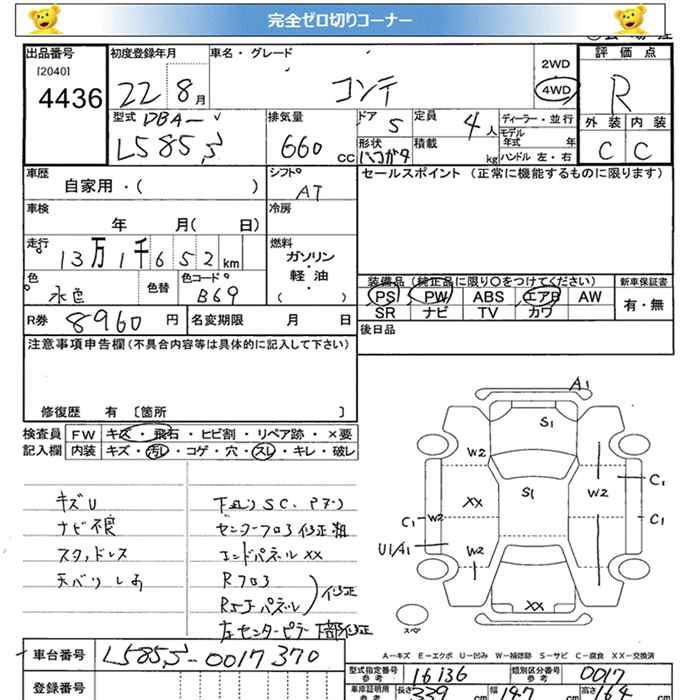 完全ゼロ切りコーナー
出品番号 初度登録年月 車名・グレード 2WD 評価点
[2040]
4436 22 8月 コンテ 4WD R
型式 DBA- 排気量 ドア 定員 ディーラー・並行 外装 内装
L585S 660cc 5 4人 モデル年式 年
形状 積載 kg ハンドル 左・右 C C
車歴 シフト セールスポイント (正常に機能するものに限ります)
自家用・( ) AT
車検 冷房
年 月( 日)
走行 燃料
13万1千652km ガソリン・軽・油・( )
色 色替 色コード 装備品(純正品に限り○をつけてください) 新車保証書
水色 B69 PS PW ABS エアB AW 有・無
R券 8960円 名変期限 月 日 SR ナビ TV カワ
後日品
注意事項申告欄(不具合内容等は具体的に記入して下さい)
修復歴 有 [箇所 ]
検査員 FW キズ・飛石・ヒビ割・リペア跡・×要
記入欄 内装 キズ・汚レ・コゲ・穴・スレ・キレ・破レ
キズU
ナビ不良 センターフロア修正粗
スタッドレス エンドパネルXX
天バリしみ Rフロア
修正
左センターピラー下部修正
A1
S1
W2 W2
XX S1 W2 C1
C1 W2 C1
U1/A1 W2
XX
スペア
A-キズ E-エクボ U-凹み W-補修跡 S-サビ C-腐食 XX-交換済
車台番号 L585S-0017370
型式指定番号 参考 16136 類別区分番号 参考 0017
登録番号 車庫証明用 参考 長さ 339cm 幅 147cm 高さ 164cm